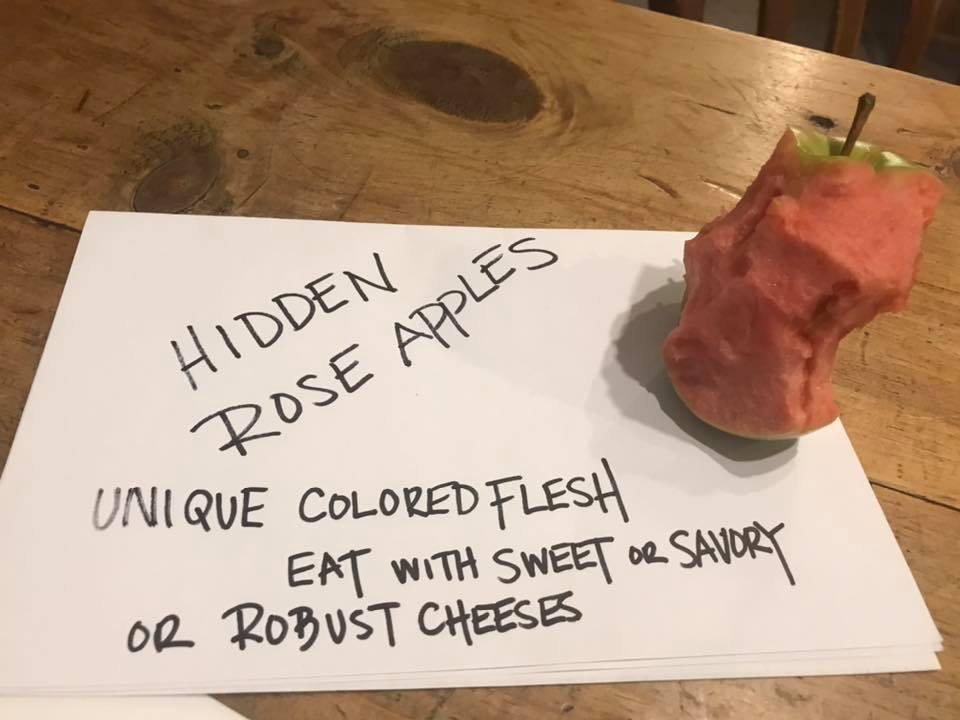 HIDDEN
ROSE APPLES
UNIQUE COLORED FLESH
EAT WITH SWEET OR SAVORY
OR ROBUST CHEESES